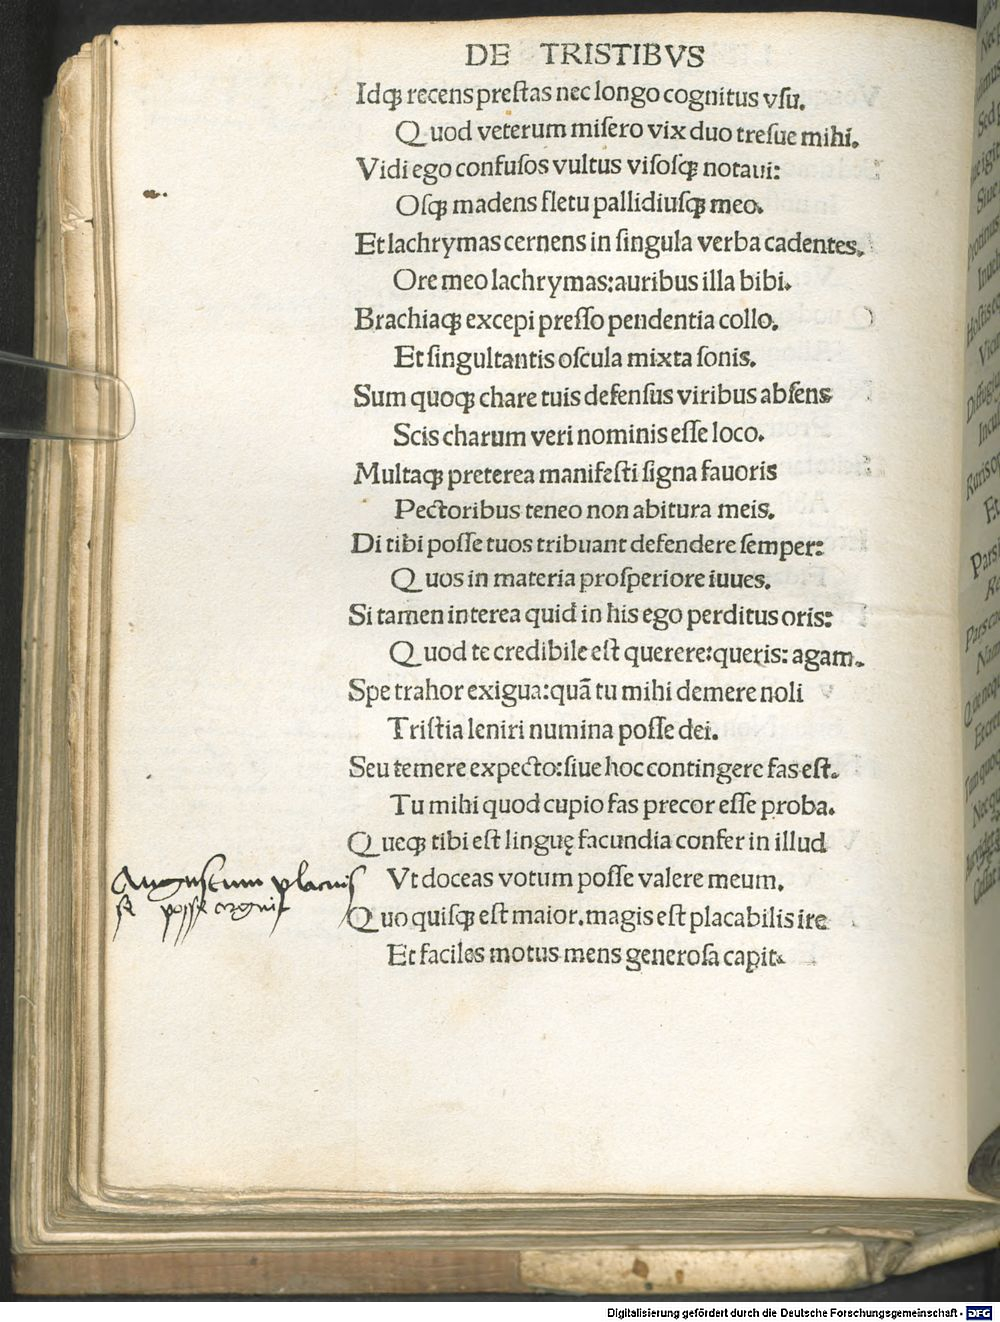 DE TRISTIBVS
Idqꝫ recens preſtas nec longo cognitus vſu.
Quod veterum miſero vix duo treſue mihi.
Vidi ego confuſos vultus viſoſqꝫ notaui:
Oſqꝫ madens fletu pallidiuſqꝫ meo.
Et lachrymas cernens in ſingula verba cadentes.
Ore meo lachrymas: auribus illa bibi.
Brachiaqꝫ excepi preſſo pendentia collo.
Et ſingultantis oſcula mixta ſonis.
Sum quoqꝫ chare tuis defenſus viribus abſens
Scis charum veri nominis eſſe loco.
Multaqꝫ preterea manifeſti ſigna fauoris
Pectoribus teneo non abitura meis.
Di tibi poſſe tuos tribuant defendere ſemper:
Quos in materia proſperiore iuues.
Si tamen interea quid in his ego perditus oris:
Quod te credibile eſt querere: queris: agam.
Spe trahor exigua: quā tu mihi demere noli
Triſtia leniri numina poſſe dei.
Seu temere expecto: ſiue hoc contingere fas eſt.
Tu mihi quod cupio fas precor eſſe proba.
Queqꝫ tibi eſt linguę facundia confer in illud
Vt doceas votum poſſe valere meum.
Quo quiſqꝫ eſt maior. magis eſt placabilis ire
Et faciles motus mens generoſa capit.
Augustum
posse
Digitalisierung gefördert durch die Deutsche Forschungsgemeinschaft - DFG